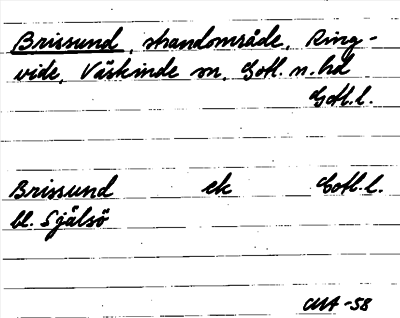 Brissund, strandområde, Ring-
vide, Väskinde sn, Gotl. n. hd
Gotl. l.
Brissund ek Gotl. l.
bl. Själsö
CMA -58